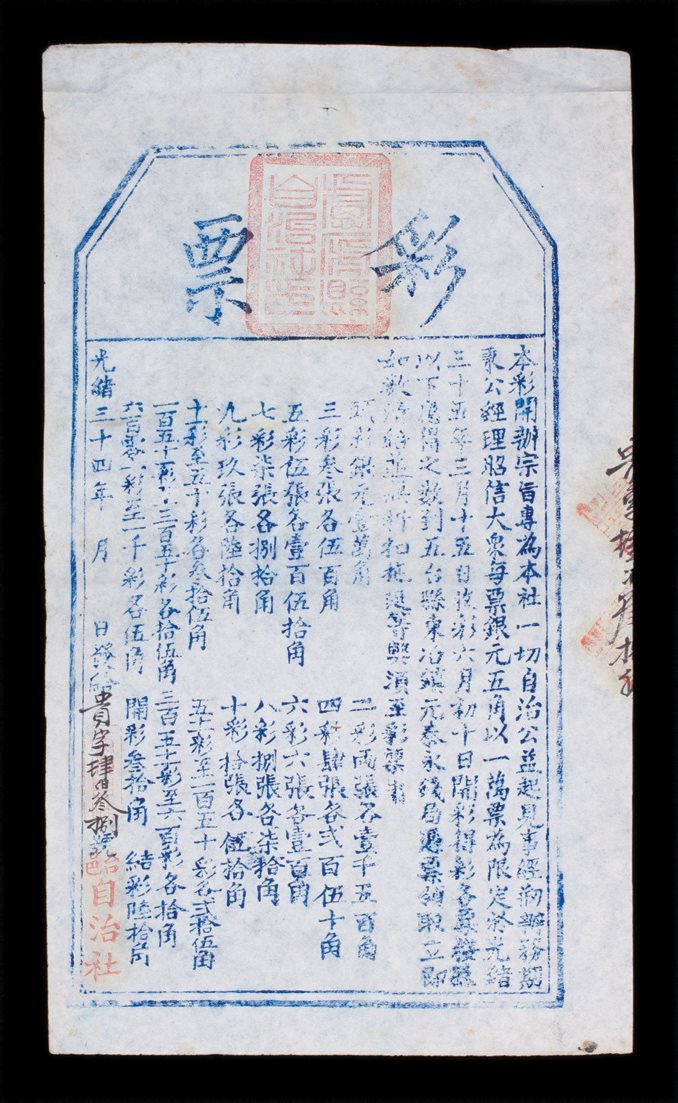 彩票
本彩開辦宗旨專為本社一切自治公益起見事經稟辦務期
秉公經理昭信大衆每票銀元五角以一萬票為限定於光緒
三十五年三月十五日 彩六月初十日開彩得彩各票按照
以下應得之數到五台縣東冶鎮元泰永錢局憑票領取立即
如數 須至彩票者
頭彩銀元壹萬角
二彩兩張各壹千五百角
三彩叁張各伍百角
四彩肆張各弍百伍十角
五彩伍張各壹百伍拾角
六彩六張各壹百角
七彩柒張各捌拾角
八彩捌張各柒拾角
九彩玖張各陸拾角
十彩拾張各伍拾角
十一彩至五十彩各叁拾伍角
五十一彩至一百五十彩各弍拾伍角
一百五十一彩至三百五十彩各拾伍角
三百五十一彩至六百彩各拾角
六百零一彩至一千彩各伍角
開彩叁拾角
結彩陸拾角
光緒三十四年 月 日發給貴字肆百叁捌號
自治社